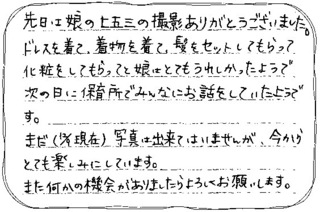 先日は娘の七五三の撮影ありがとうございました。
ドレスを着て、着物を着て、髪をセットしてもらって
化粧をしてもらってと娘はとてもうれしかったようで
次の日に保育所でみんなにお話をしていたようで
す。
まだ(現在)写真は出来てはいませんが、今から
とても楽しみにしています。
また何かの機会がありましたらよろしくお願いします。